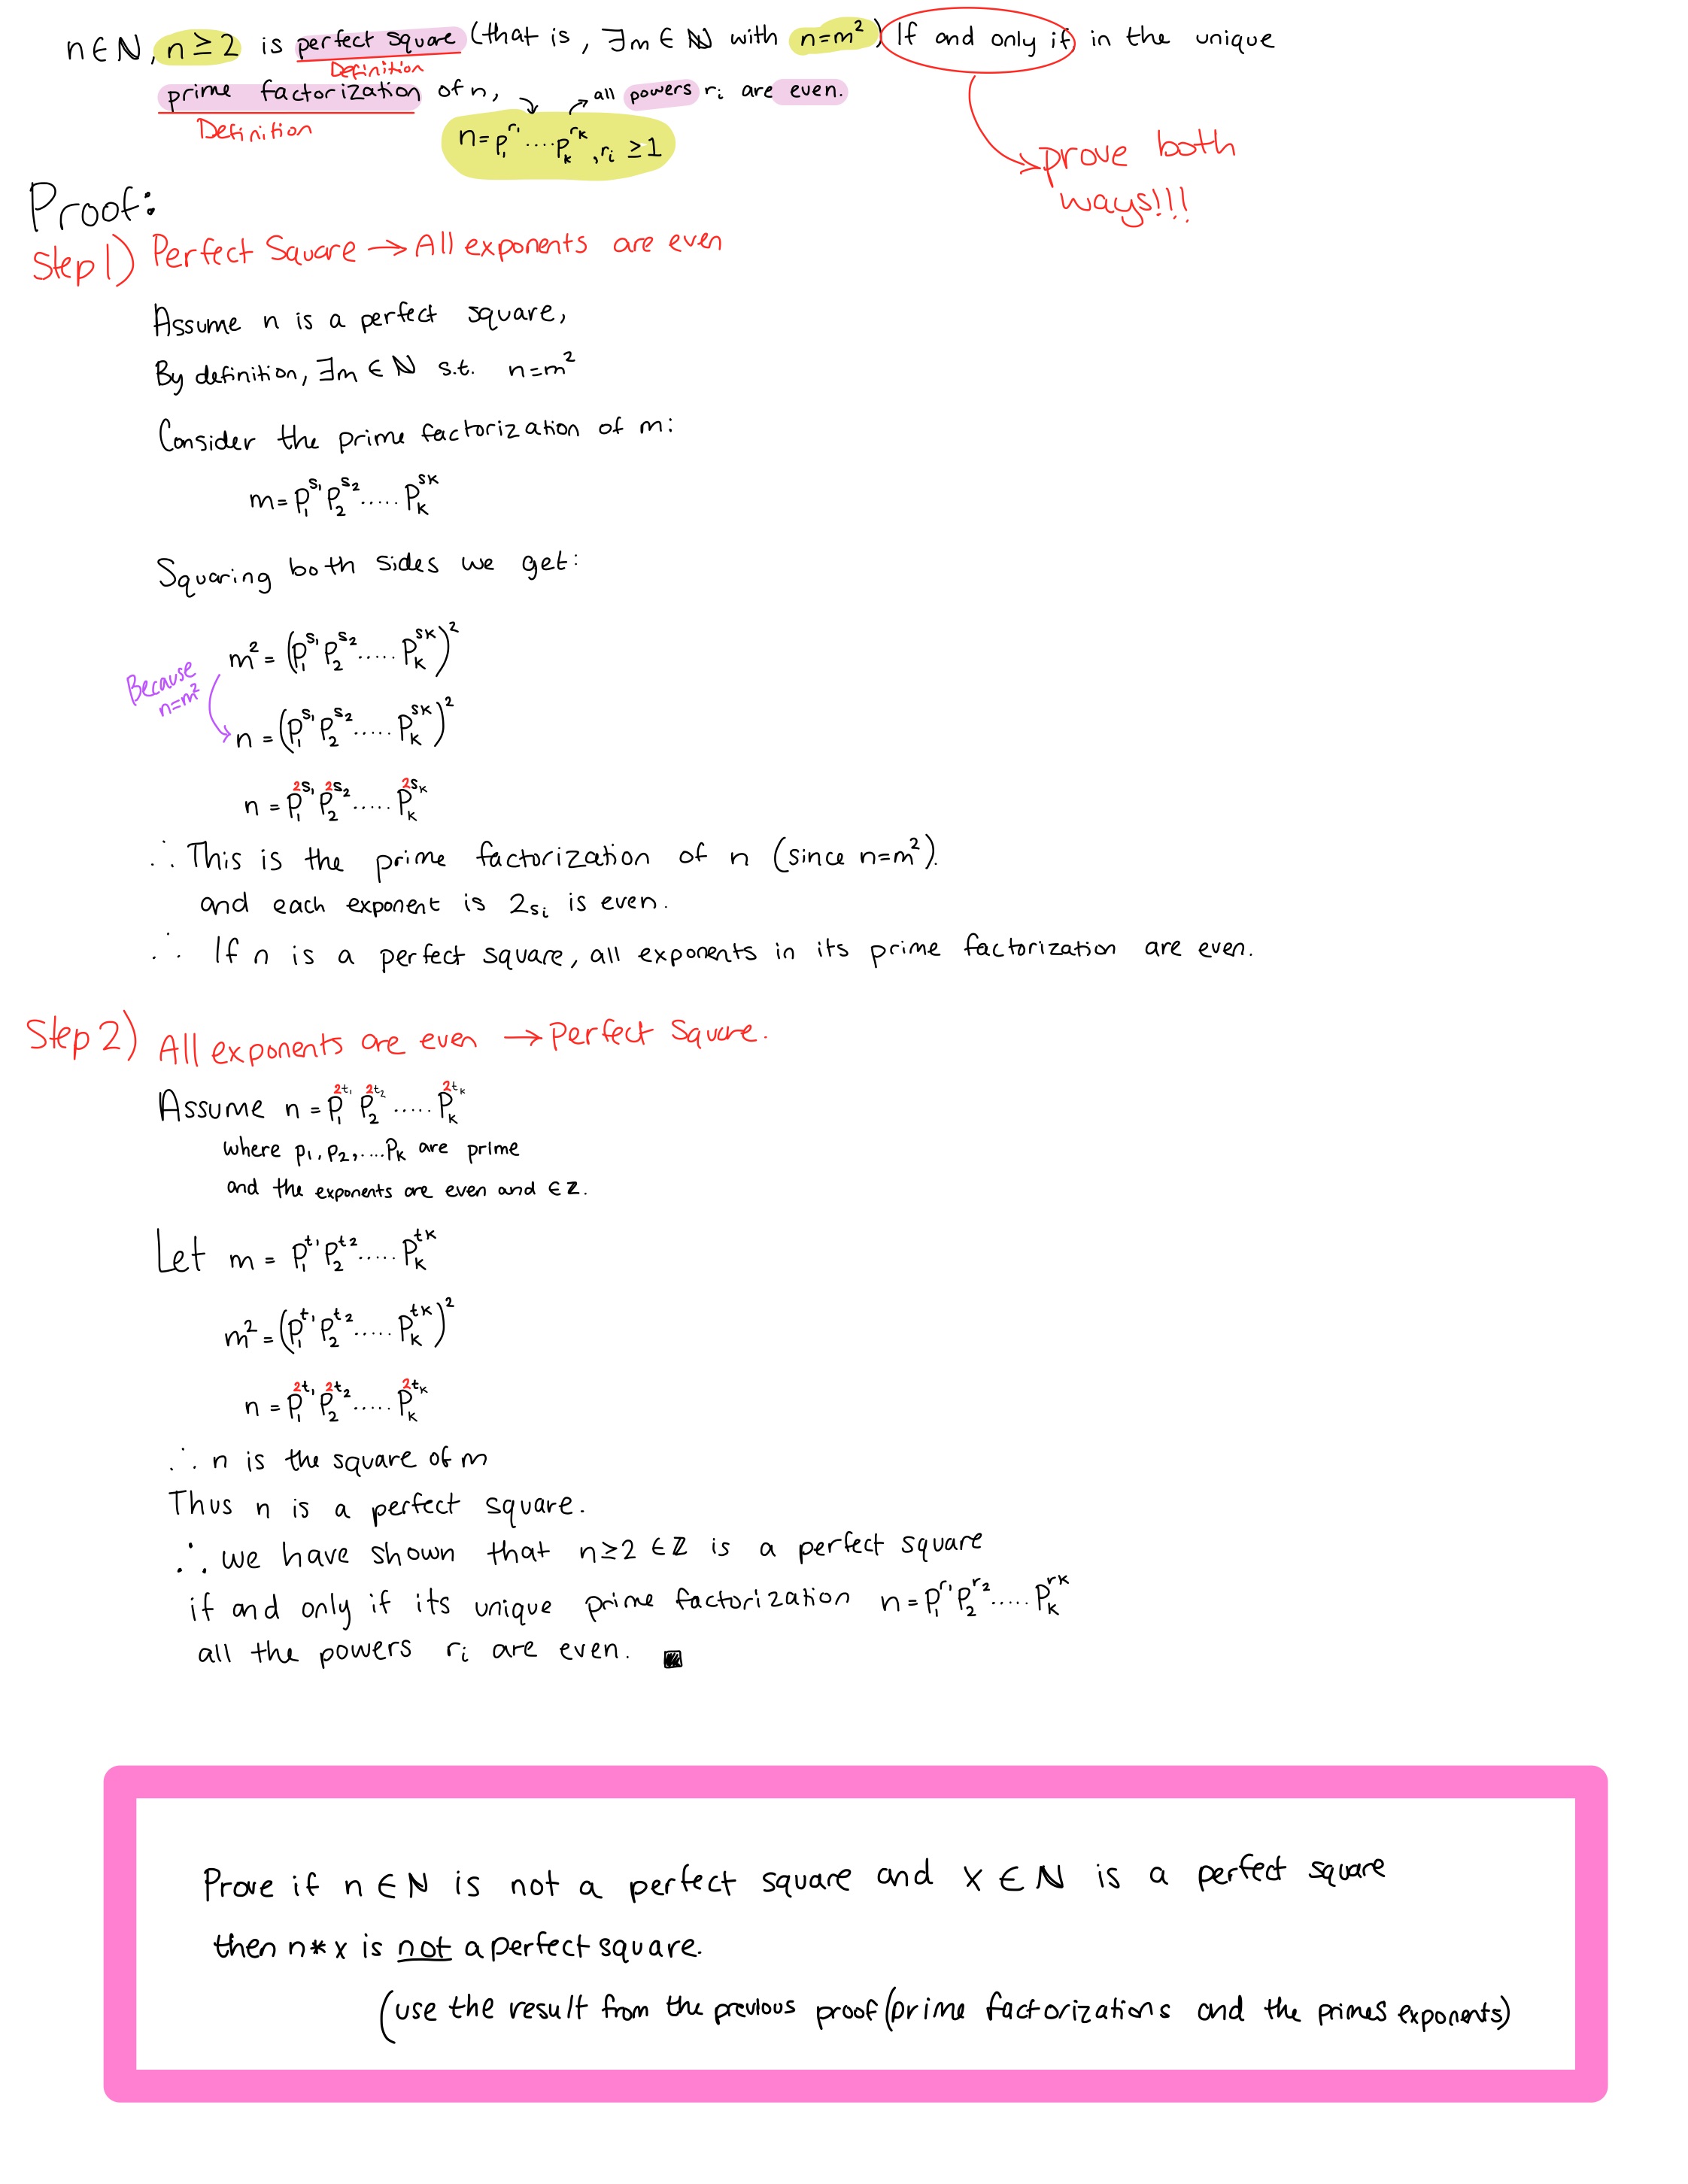 n∈ℕ, n ≥ 2 is perfect square (that is, ∃m ∈ ℕ with n=m²) If and only if in the unique
Definition
prime factorization of n, all powers rᵢ are even.
Definition
n=p₁^r₁ ····p_k^r_k , rᵢ ≥1
prove both
ways!!!
Proof:
Step 1) Perfect Square → All exponents are even
Assume n is a perfect square,
By definition, ∃m ∈ ℕ s.t. n=m²
Consider the prime factorization of m:
m=p₁^s₁ p₂^s₂ ..... p_k^s_k
Squaring both sides we get:
m² = (p₁^s₁ p₂^s₂ ..... p_k^s_k)²
Because
n=m²
n = (p₁^s₁ p₂^s₂ ..... p_k^s_k)²
n = p₁^2s₁ p₂^2s₂ ..... p_k^2s_k
∴ This is the prime factorization of n (since n=m²).
and each exponent is 2sᵢ is even.
∴ If n is a perfect square, all exponents in its prime factorization are even.
Step 2) All exponents are even → Perfect Square.
Assume n = p₁^2t₁ p₂^2t₂ ..... p_k^2t_k
where p₁, p₂, ....p_k are prime
and the exponents are even and ∈ ℤ.
Let m = p₁^t₁ p₂^t₂ ..... p_k^t_k
m² = (p₁^t₁ p₂^t₂ ..... p_k^t_k)²
n = p₁^2t₁ p₂^2t₂ ..... p_k^2t_k
∴ n is the square of m
Thus n is a perfect square.
∴ we have shown that n≥2 ∈ ℤ is a perfect square
if and only if its unique prime factorization n = p₁^r₁ p₂^r₂ ..... p_k^r_k
all the powers rᵢ are even. ■
Prove if n ∈ ℕ is not a perfect square and x ∈ ℕ is a perfect square
then n*x is not a perfect square.
(use the result from the previous proof (prime factorizations and the primes exponents)